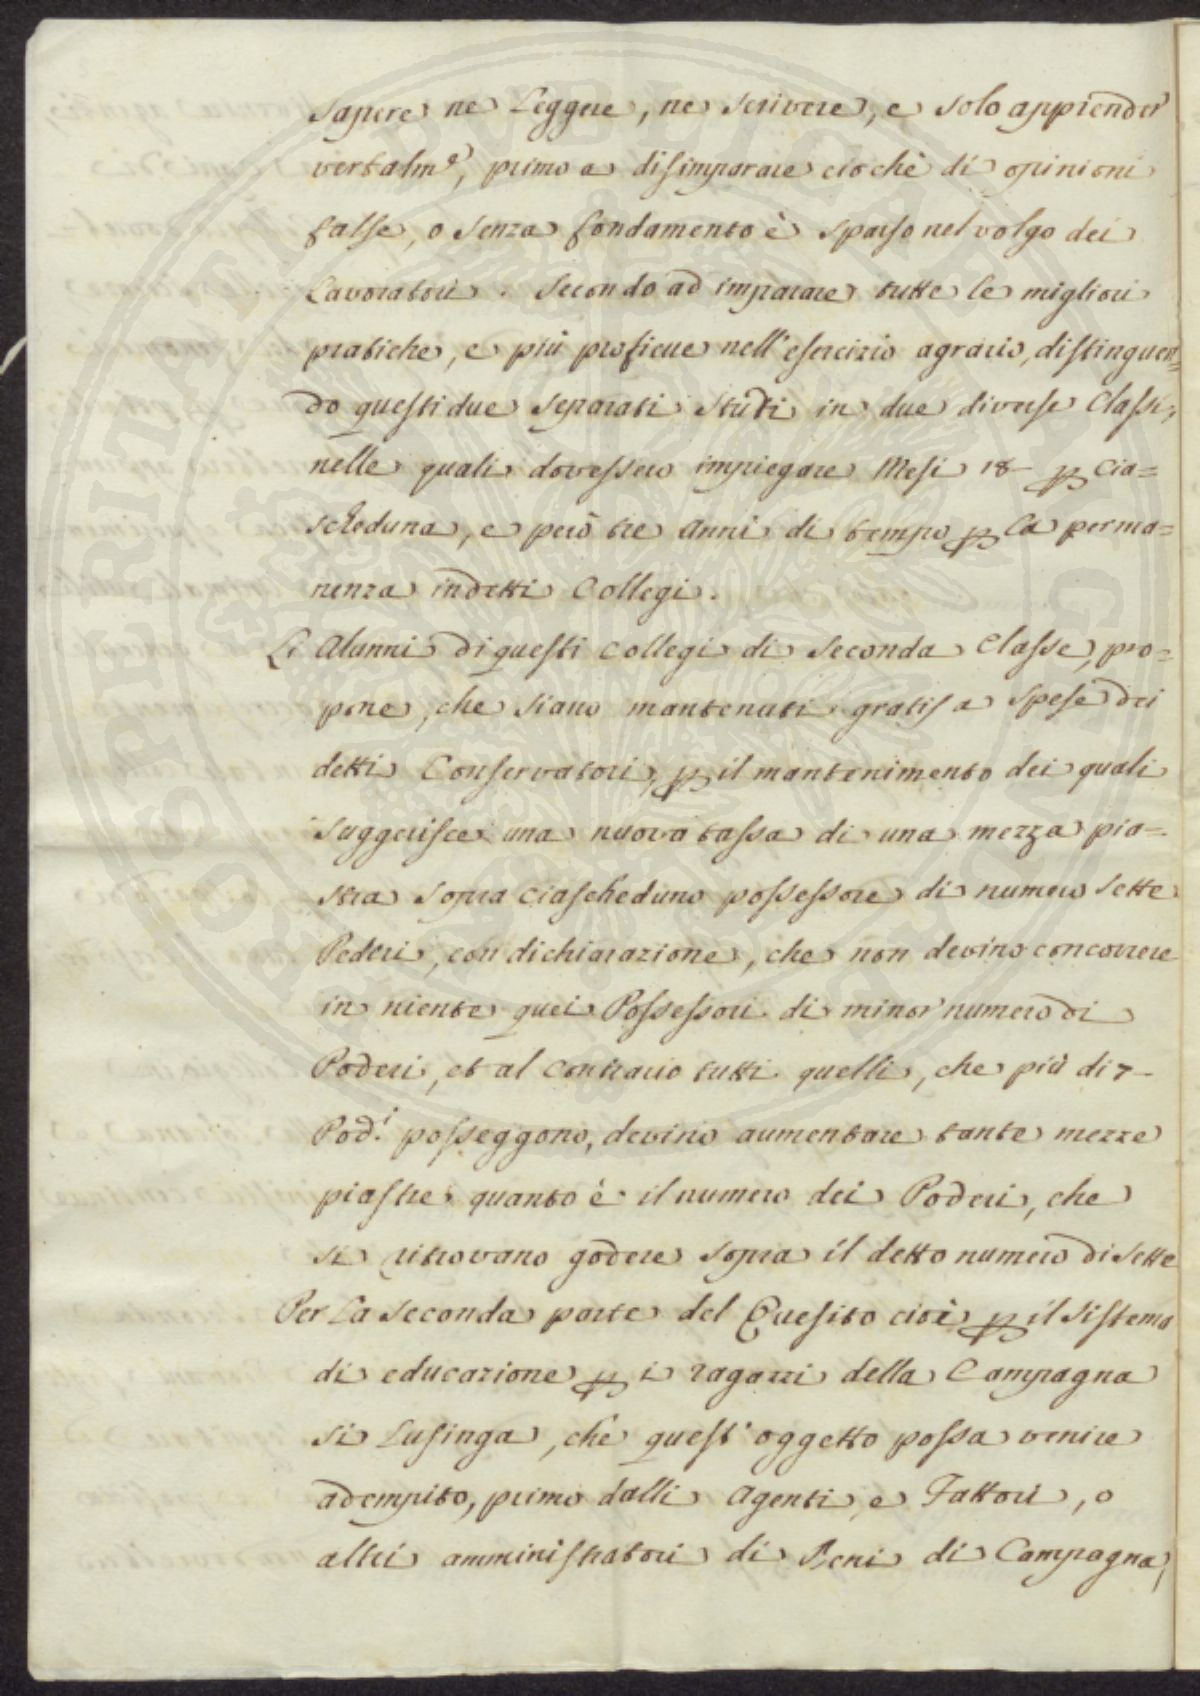 sapere ne Leggere, ne scrivere, e solo apprender
verbalm.e, primo a disimparare ciochè di opinioni
false, o senza fondamento è sparso nel volgo dei
Lavoratori. Secondo ad imparare tutte le migliori
pratiche, e più proficue nell'esercizio agrario, distinguen=
do questi due separati studi in due diverse Classi,
nelle quali dovessero impiegare Mesi 18 p cia=
scheduna, e però tre anni di tempo p la perma=
nenza in detti Collegi.
Li Alunni di questi collegi di seconda Classe, pro=
pone, che siano mantenuti gratis a spese dei
detti Conservatori, p il mantenimento dei quali
suggerisce una nuova tassa di una mezza pia=
stra sopra ciascheduno possessore di numero sette
Poderi, con dichiarazione, che non devino concorrere
in niente quei Possessori di minor numero di
Poderi, et al contrario tutti quelli, che più di 7
Pod.i posseggono, devino aumentare tante mezze
piastre quanto è il numero dei Poderi, che
si ritrovano godere sopra il detto numero di sette
Per La seconda parte del Quesito cioè p il sistema
di educazione p i ragazzi della Campagna
si Lusinga, che quest'oggetto possa venire
adempito, primo dalli Agenti, e Fattori, o
altri amministratori di Beni di Campagna,
POSPERITATI PVBLICAE